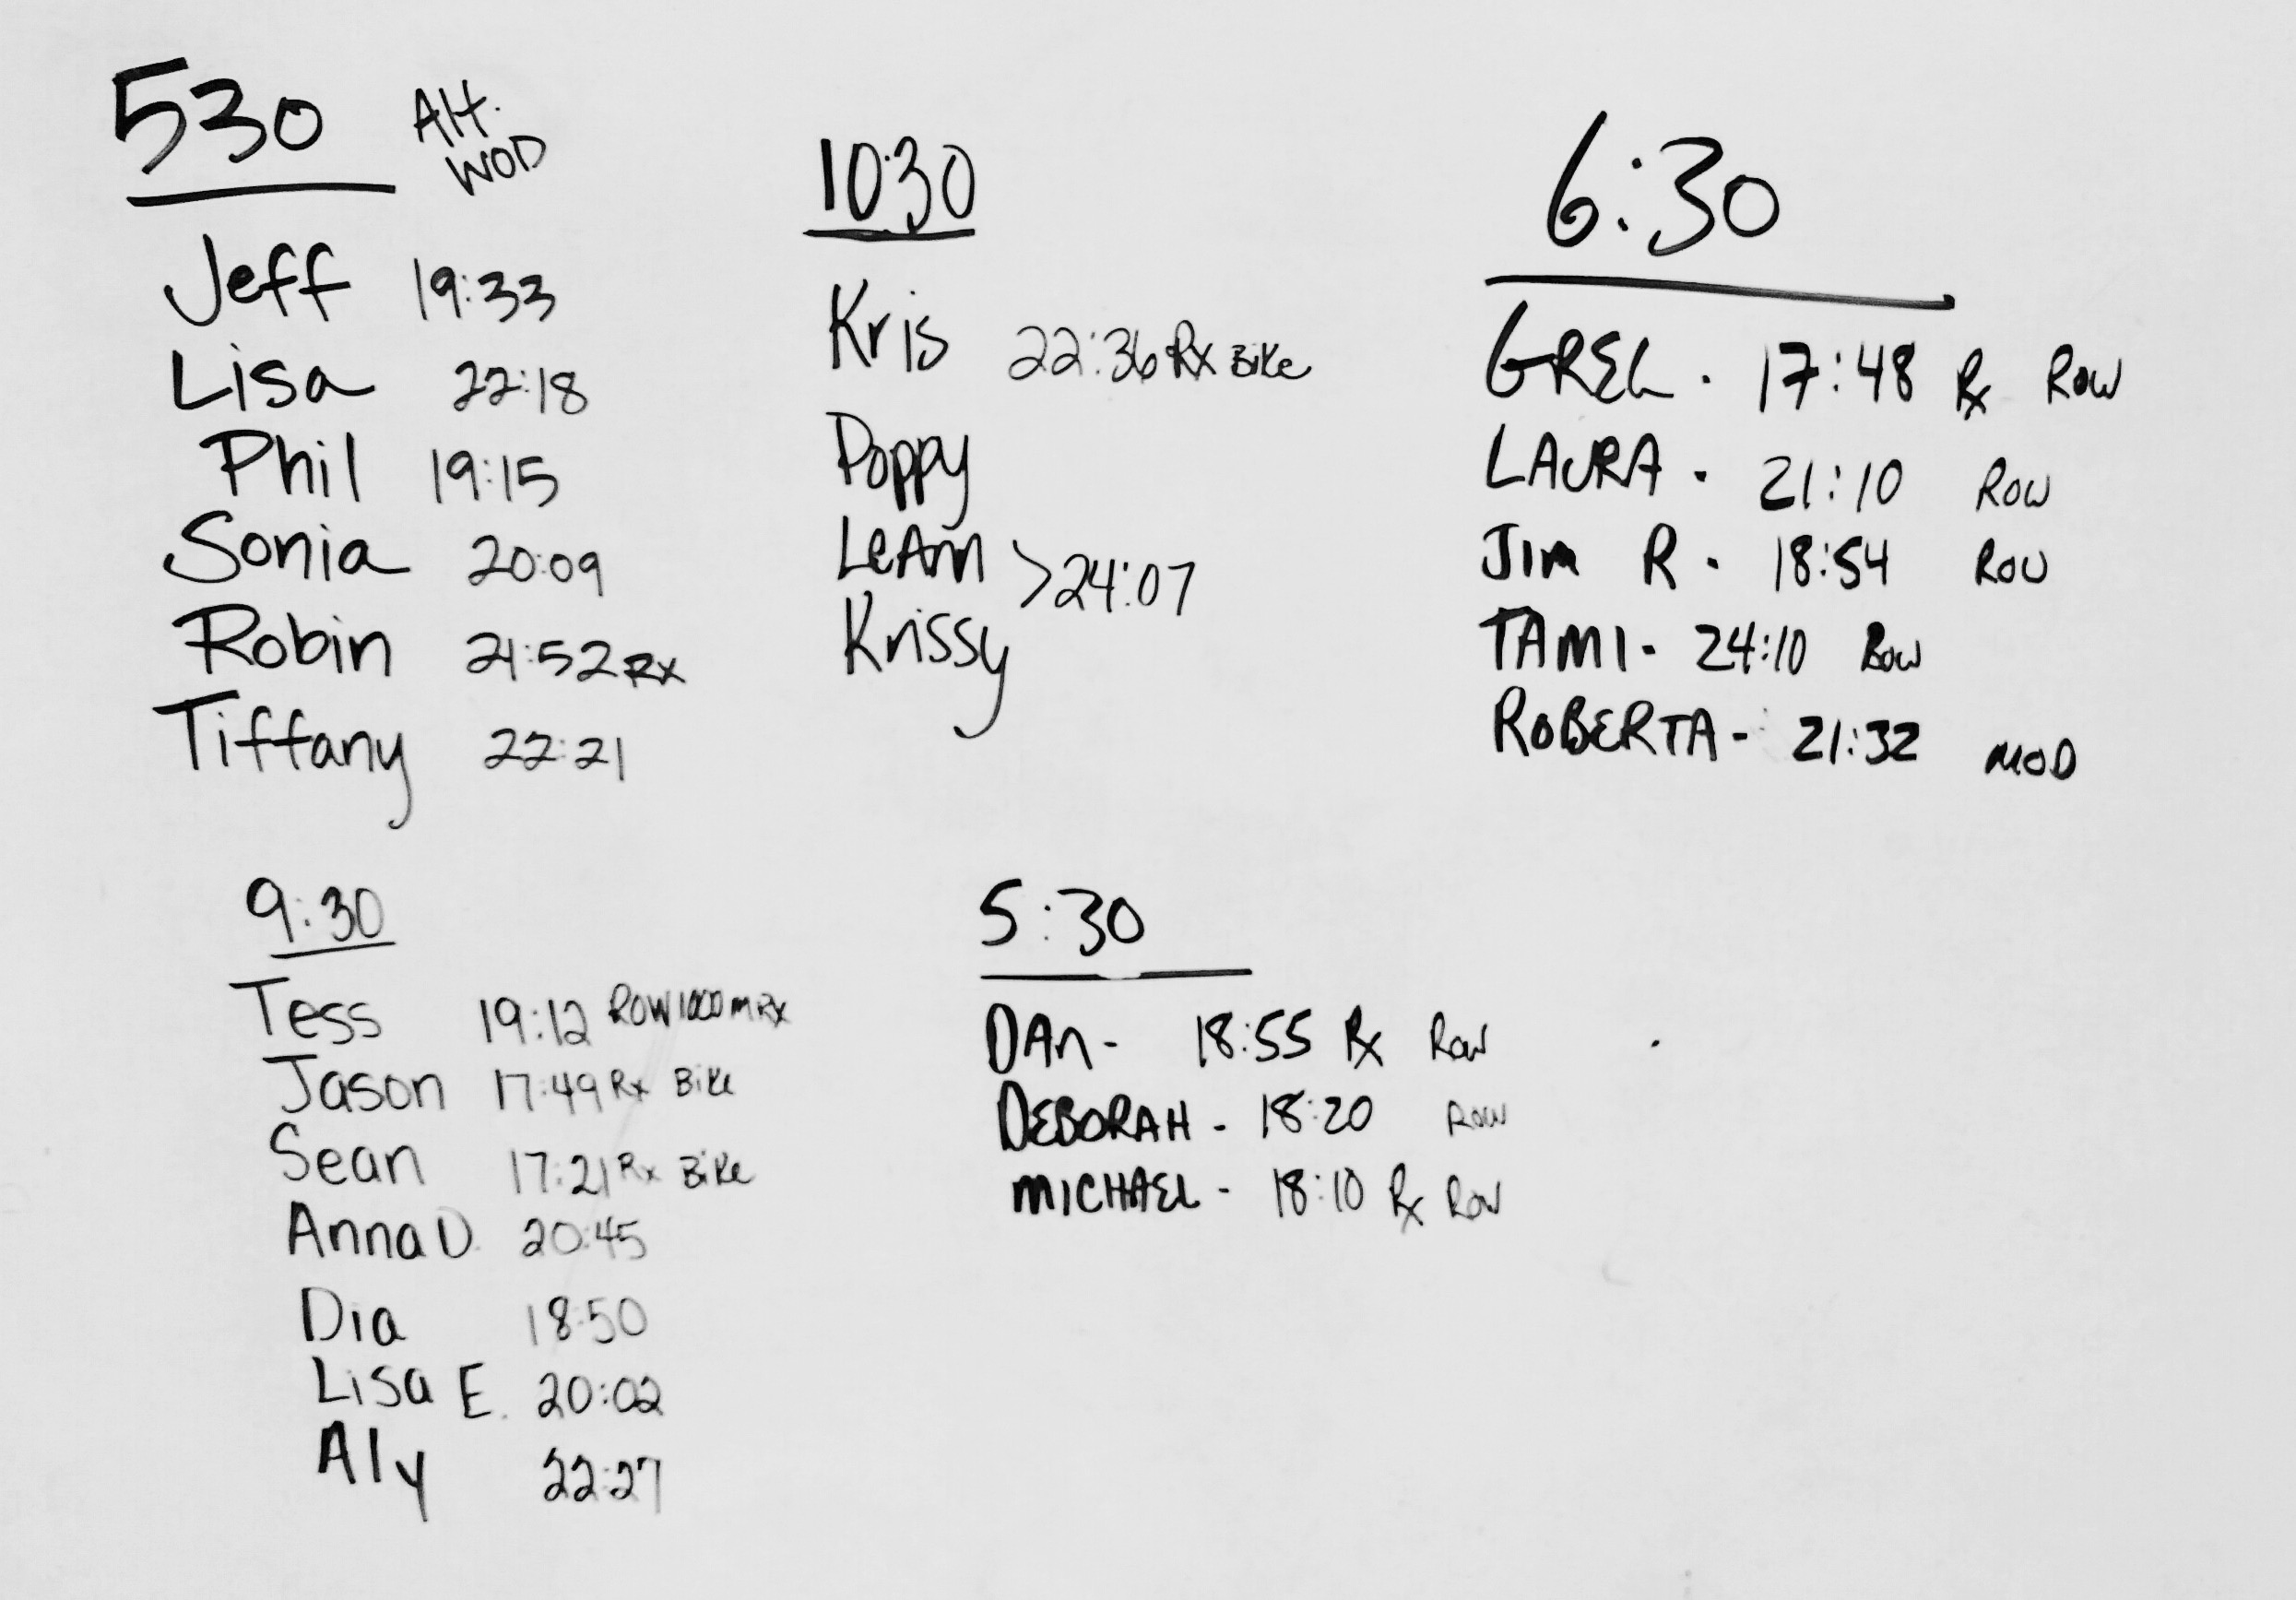 530 Alt.
WOD
Jeff 19:33
Lisa 22:18
Phil 19:15
Sonia 20:09
Robin 21:52 Rx
Tiffany 22:21
10:30
Kris 22:36 Rx Bike
Poppy
LeAnn >24:07
Krissy
6:30
GREG. 17:48 Rx ROW
LAURA. 21:10 ROW
JIM R. 18:54 ROW
TAMI- 24:10 ROW
ROBERTA- 21:32 MOD
9:30
Tess 19:12 ROW 1000m Rx
Jason 17:49 Rx Bike
Sean 17:21 Rx Bike
Anna D. 20:45
Dia 18:50
Lisa E. 20:02
Aly 22:27
5:30
DAn- 18:55 Rx Row
DEBORAH- 18:20 Row
MICHAEL- 18:10 Rx Row